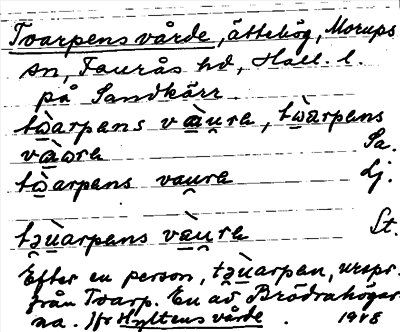 Tvarpens vårde, ättehög, Morups
sn, Faurås hd, Hall. l.
på Sandkärr
tὼarpens væ̀u̯ra, tὼarpens
væ̀ωra Sa.
tὼarpens vau̯ra Lj.
tə̯ù̱arpens væ̀u̯ra St.
Efter en person, tə̯ù̱arpen, urspr.
från Tvarp. En av Brödrahögar
na. Jfr Hyltens vårde. 1918